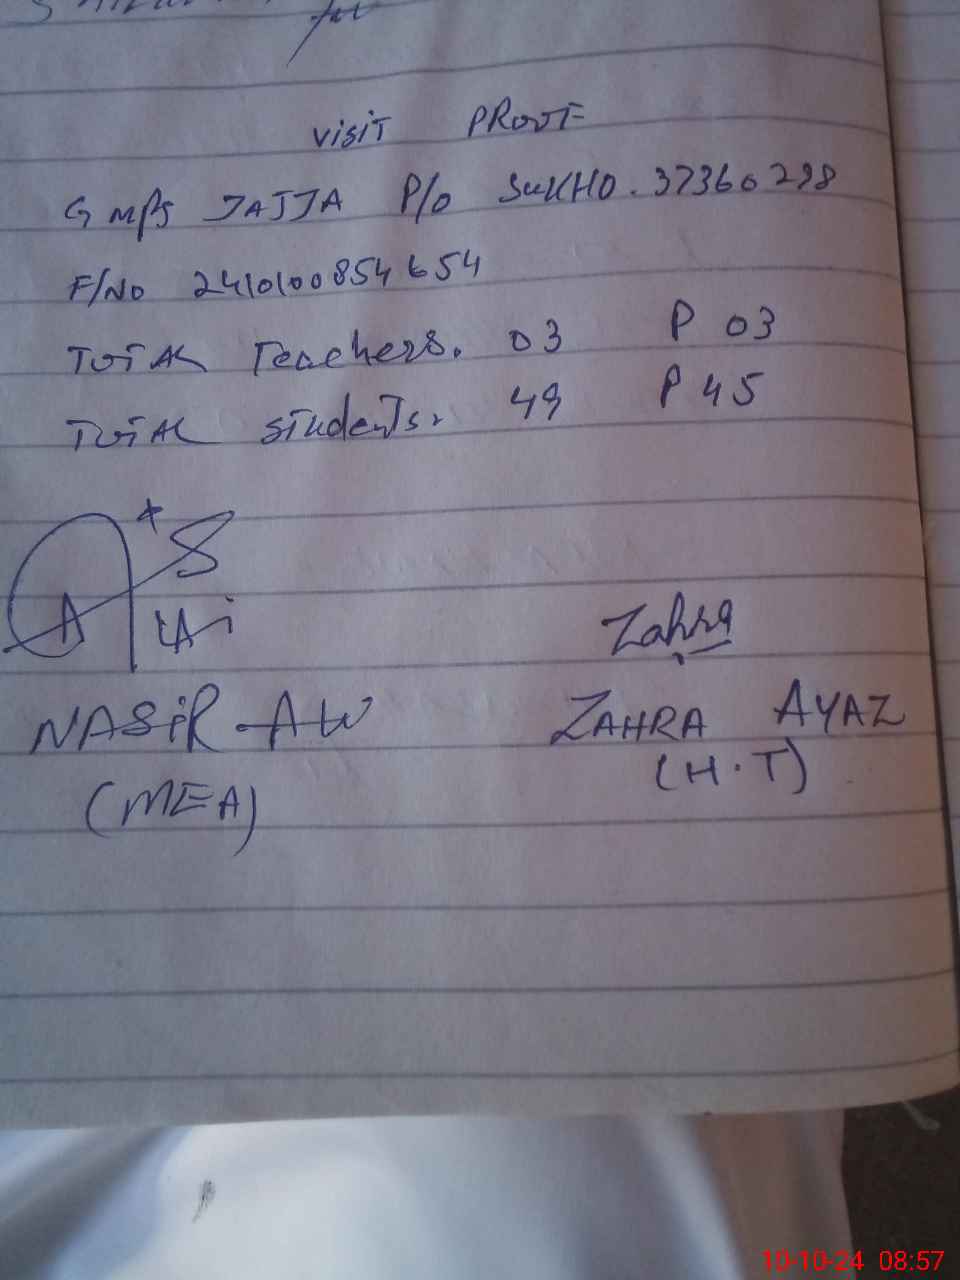 VISIT PROOF
G MPS JAJJA P/o SUKHO. 37360298
F/No 2410100854654
TOTAL Teachers. 03 P 03
TOTAL Students. 49 P 45
Zahra
NASIR ALI
ZAHRA AYAZ
(MEA)
(H.T)
10-10-24 08:57